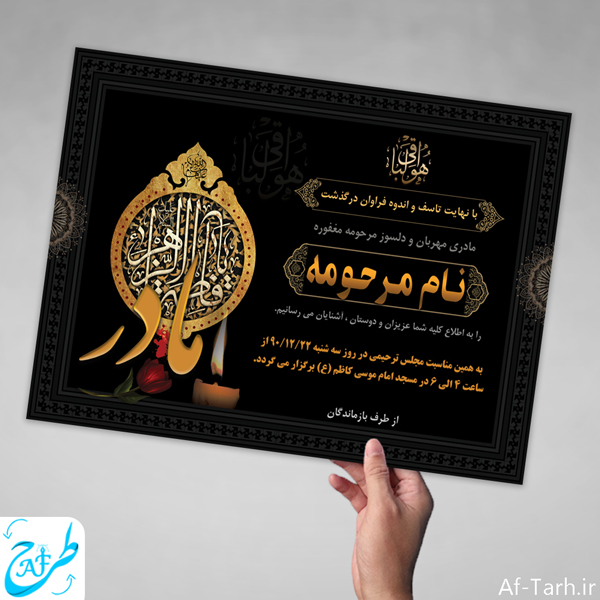 هو الباقی
با نهایت تاسف و اندوه فراوان درگذشت
مادری مهربان و دلسوز مرحومه مغفوره
نام مرحومه
را به اطلاع کلیه شما عزیزان و دوستان ، آشنایان می رسانیم.
به همین مناسبت مجلس ترحیمی در روز سه شنبه ۹۰/۱۲/۲۲ از
ساعت ۴ الی ۶ در مسجد امام موسی کاظم (ع) برگزار می گردد.
از طرف بازماندگان
هو الباقی
یا فاطمة الزهرا
مادر
طرح
AF
Af-Tarh.ir